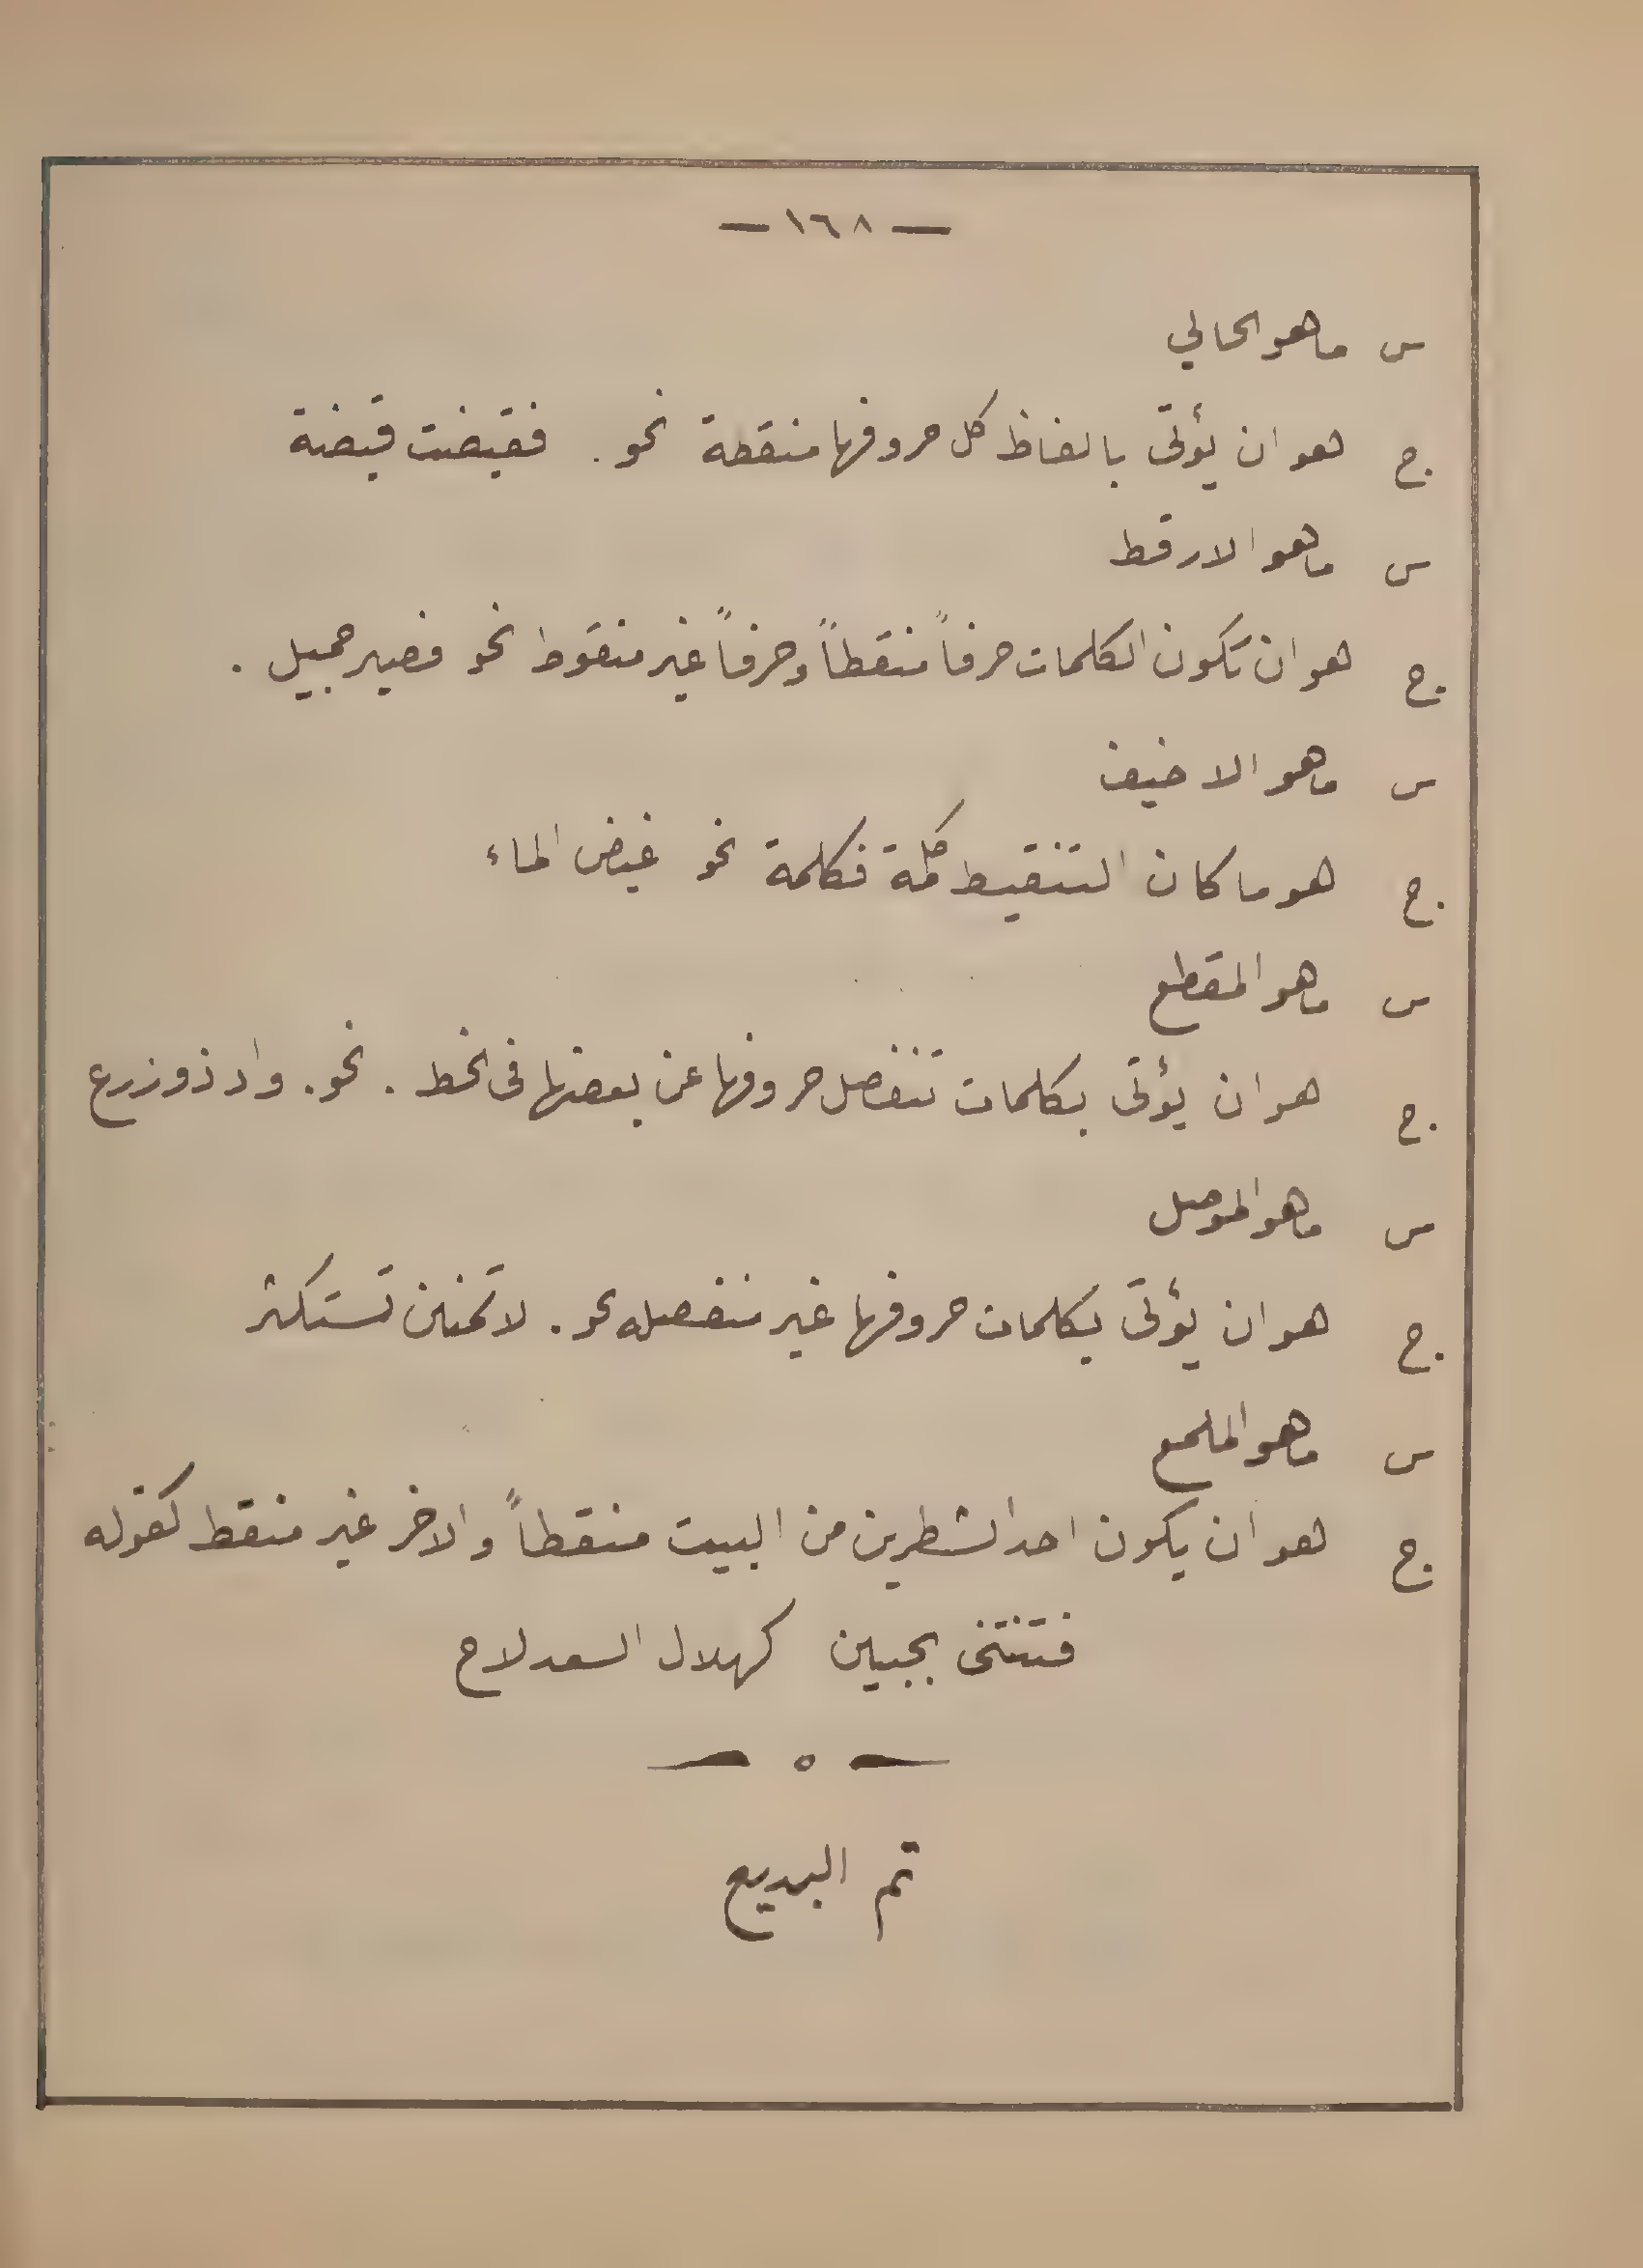 — ١٦٨ —
س ماهو الحالي
ج. هو ان يؤتى بالفاظ كل حروفها منقطة نحو . فقبضت قبضة
س ماهو الارقط
ج. هو ان تكون الكلمات حرفاً منقطاً وحرفاً غير منقوط نحو فصبر جميل .
س ماهو الاخيف
ج. هو ما كان التنقيط كلمة فكلمة نحو غيض الماء
س ماهو المقطع
ج. هو ان يؤتى بكلمات تنفصل حروفها عن بعضها فى الخط . نحو . واد ذو زرع
س ماهو الموصل
ج. هو ان يؤتى بكلمات حروفها غير منفصله نحو . لا تمنن تستكثر
س ماهو الملمع
ج. هو ان يكون احد الشطرين من البيت منقطاً والاخر غير منقط كقوله
فتنتنى بجبين كهلال السعد لاح
— ٥ —
تم البديع